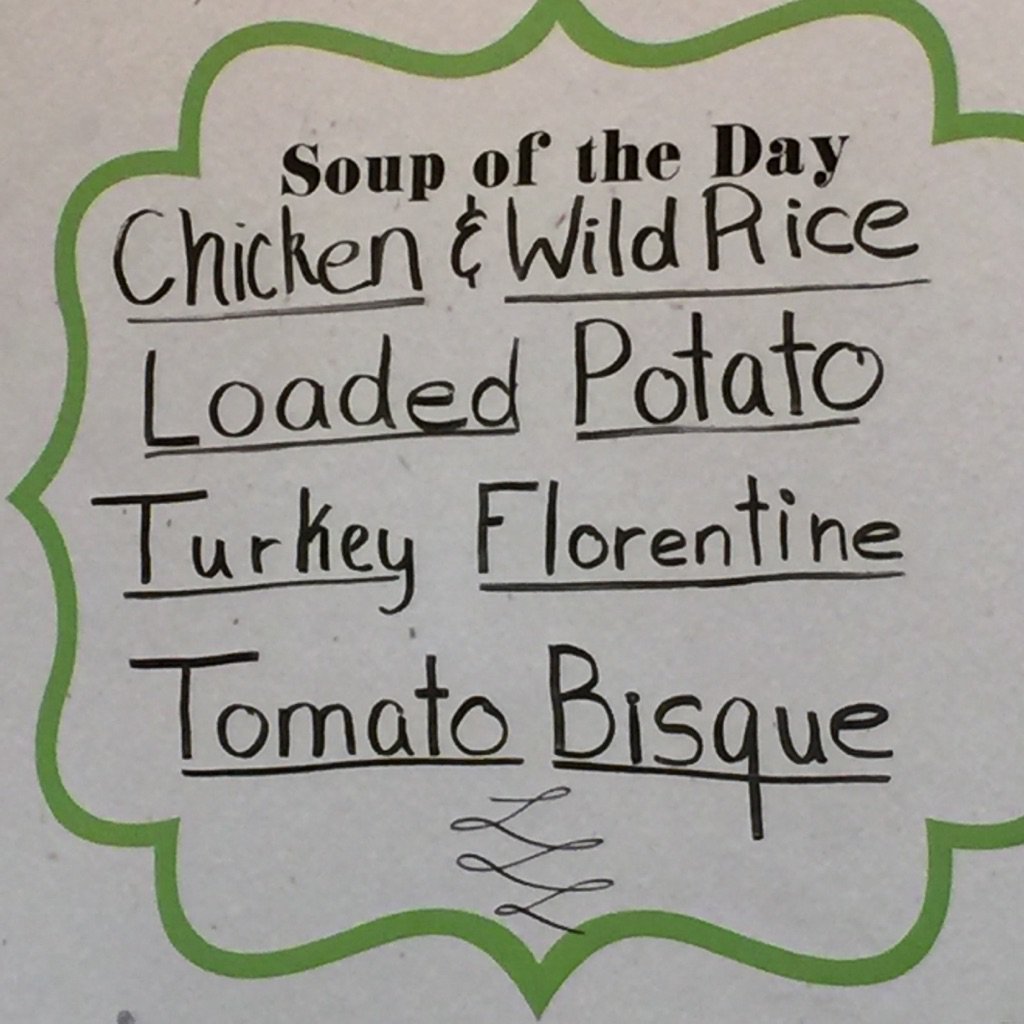 Soup of the Day
Chicken & Wild Rice
Loaded Potato
Turkey Florentine
Tomato Bisque